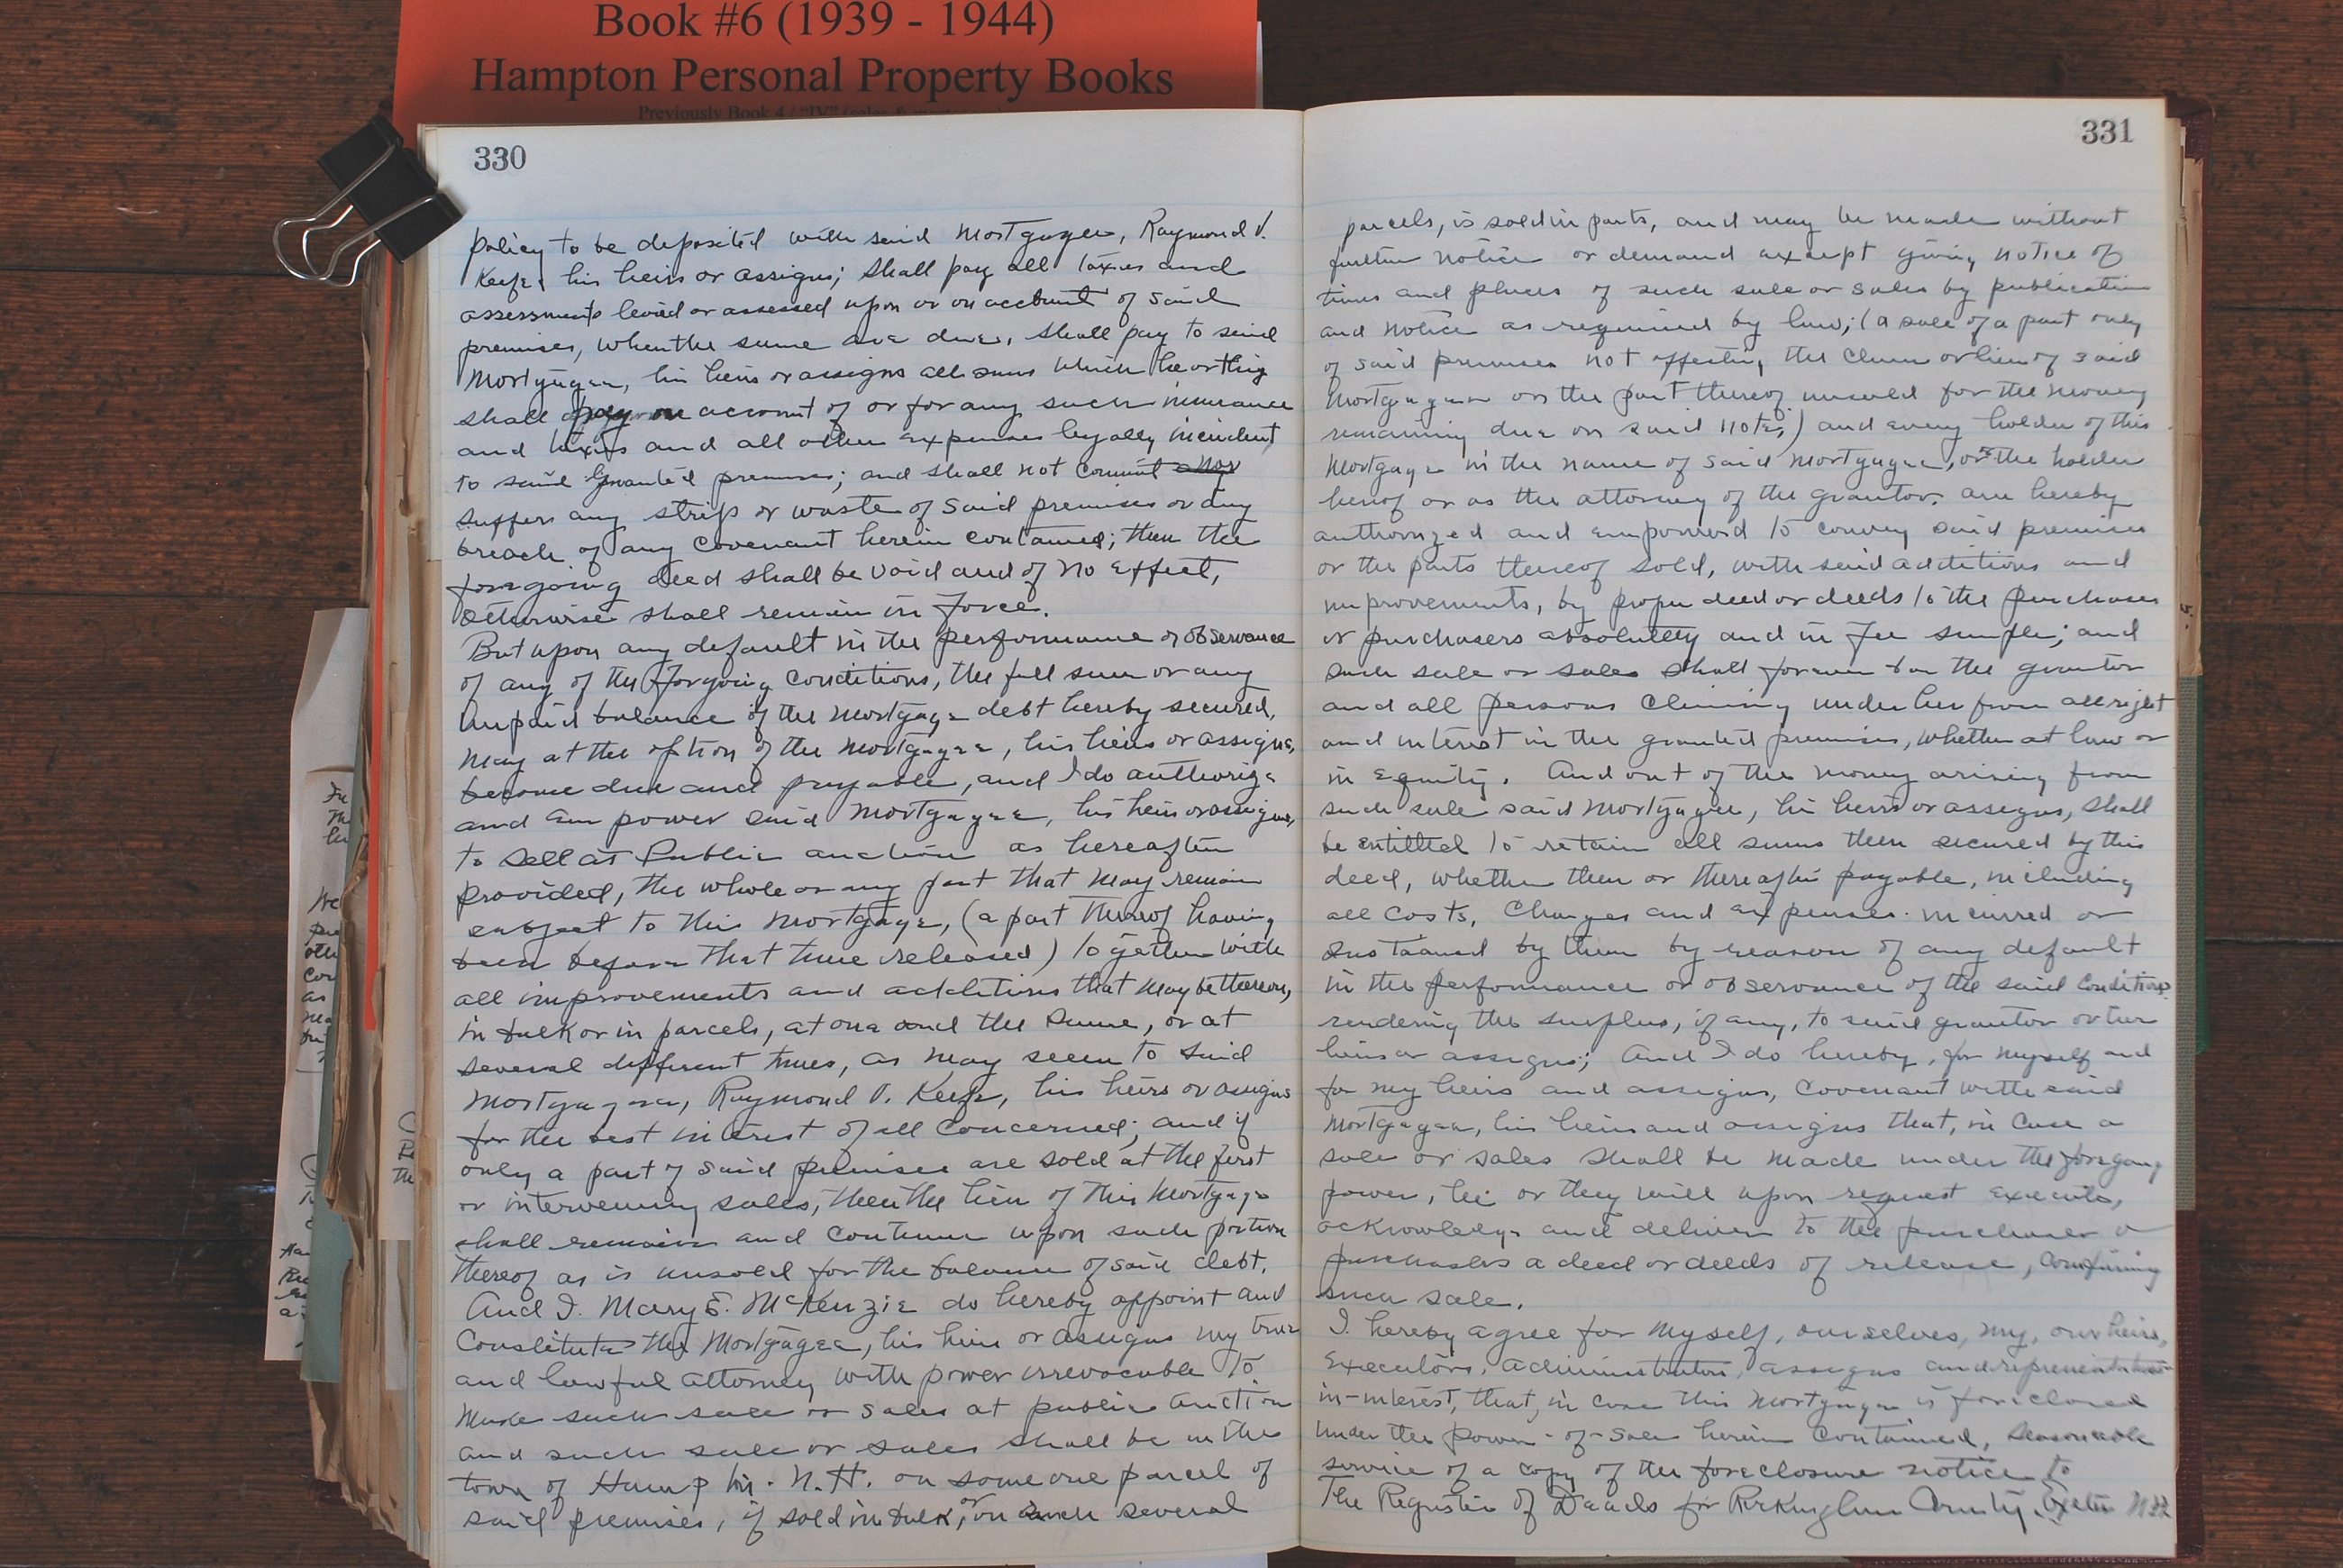 Book #6 (1939 - 1944)
Hampton Personal Property Books
Previously Book 4 / "IV" (sales &
330
policy to be deposited with said Mortgagee, Raymond V.
Keefe, his heirs or assigns; shall pay all taxes and
assessments levied or assessed upon or on account of said
premises, when the same are due, shall pay to said
Mortgagee, his heirs or assigns all sums which he or they
shall pay on account of or for any such insurance
and taxes and all other expenses legally incident
to said Granted premises; and shall not commit nor
suffer any strip or waste of said premises or any
breach of any covenant herein contained; then the
foregoing deed shall be void and of no effect,
Otherwise shall remain in force.
But upon any default in the performance or observance
of any of the forgoing conditions, the full sum or any
unpaid balance of the Mortgage debt hereby secured,
may at the option of the Mortgagee, his heirs or assigns,
become due and payable, and I do authorize
and empower said Mortgagee, his heirs or assigns,
to sell at Public auction as hereafter
provided, the whole or any part that may remain
subject to this Mortgage, (a part thereof having
been before that time released) together with
all improvements and additions that may be thereon,
in bulk or in parcels, at one and the same, or at
several different times, as may seem to said
Mortgagee, Raymond V. Keefe, his heirs or assigns
for the best interest of all concerned; and if
only a part of said premises are sold at the first
or intervening sales, then the lien of this Mortgage
shall remain and continue upon such portion
thereof as is unsold for the balance of said debt.
And I. Mary E. McKenzie do hereby appoint and
Constitute the Mortgagee, his heirs or assigns my true
and lawful attorney with power irrevocable to
make such sale or sales at public auction
and such sale or sales shall be in the
town of Hampton. N.H. on some one parcel of
said premises, if sold in bulk, or on such several
331
parcels, is sold in parts, and may be made without
further notice or demand except giving notice of
times and places of such sale or sales by publication
and notice as required by law; (a sale of a part only
of said premises not affecting the claim or lien of said
Mortgagee on the part thereof unsold for the money
remaining due on said notes) and every holder of this
Mortgage in the name of said Mortgagee, or the holder
hereof or as the attorney of the grantor. are hereby
authorized and empowered to convey said premises
or the parts thereof sold, with said additions and
improvements, by proper deed or deeds to the purchaser
or purchasers absolutely and in fee simple; and
such sale or sales shall forever bar the grantor
and all persons claiming under her from all right
and interest in the granted premises, whether at law or
in equity. And out of the money arising from
such sale said Mortgagee, his heirs or assigns, shall
be entitled to retain all sums then secured by this
deed, whether then or thereafter payable, including
all costs, charges and expenses incurred or
sustained by them by reason of any default
in the performance or observance of the said conditions
rendering the surplus, if any, to said grantor or her
heirs or assigns; And I do hereby, for myself and
for my heirs and assigns, covenant with said
Mortgagee, his heirs and assigns that, in case a
sale or sales shall be made under the foregoing
power, he or they will upon request execute,
acknowledge and deliver to the purchaser or
purchasers a deed or deeds of release, confirming
such sale.
I hereby agree for myself, ourselves, my, our heirs,
Executors, administrators, assigns and
in-interest, that, in case this Mortgage is foreclosed
under the power-of-sale herein contained, seasonable
service of a copy of the foreclosure notice to
The Register of Deeds for Rockingham County, Exeter N.H.